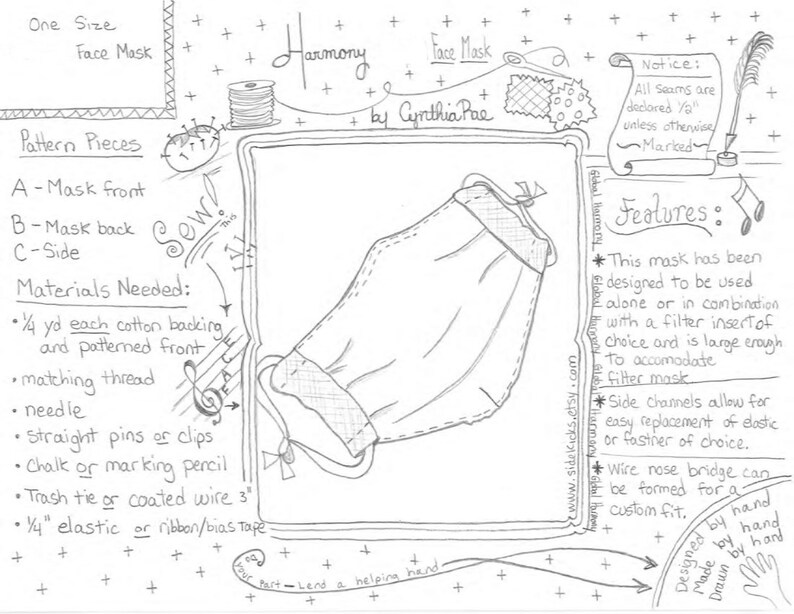 One Size
Face Mask
Harmony
Face Mask
by CynthiaRae
Notice:
All seams are
declared 1/2"
unless otherwise
~Marked~
Pattern Pieces
A - Mask front
B - Mask back
C - Side
Materials Needed:
• 1/4 yd each cotton backing
and patterned front
• matching thread
• needle
• straight pins or clips
• Chalk or marking pencil
• Trash tie or coated wire 3"
• 1/4" elastic or ribbon/bias tape
Sew!
This
Global Harmony Global Harmony Global Harmony Global Harmony
www.sidekicks.etsy.com
Features:
* This mask has been
designed to be used
alone or in combination
with a filter insert of
choice and is large enough
to accomodate
filter mask
* Side channels allow for
easy replacement of elastic
or fastner of choice.
* Wire nose bridge can
be formed for a
custom fit.
Do your Part - Lend a helping hand
Designed by hand
Made by hand
Drawn by hand